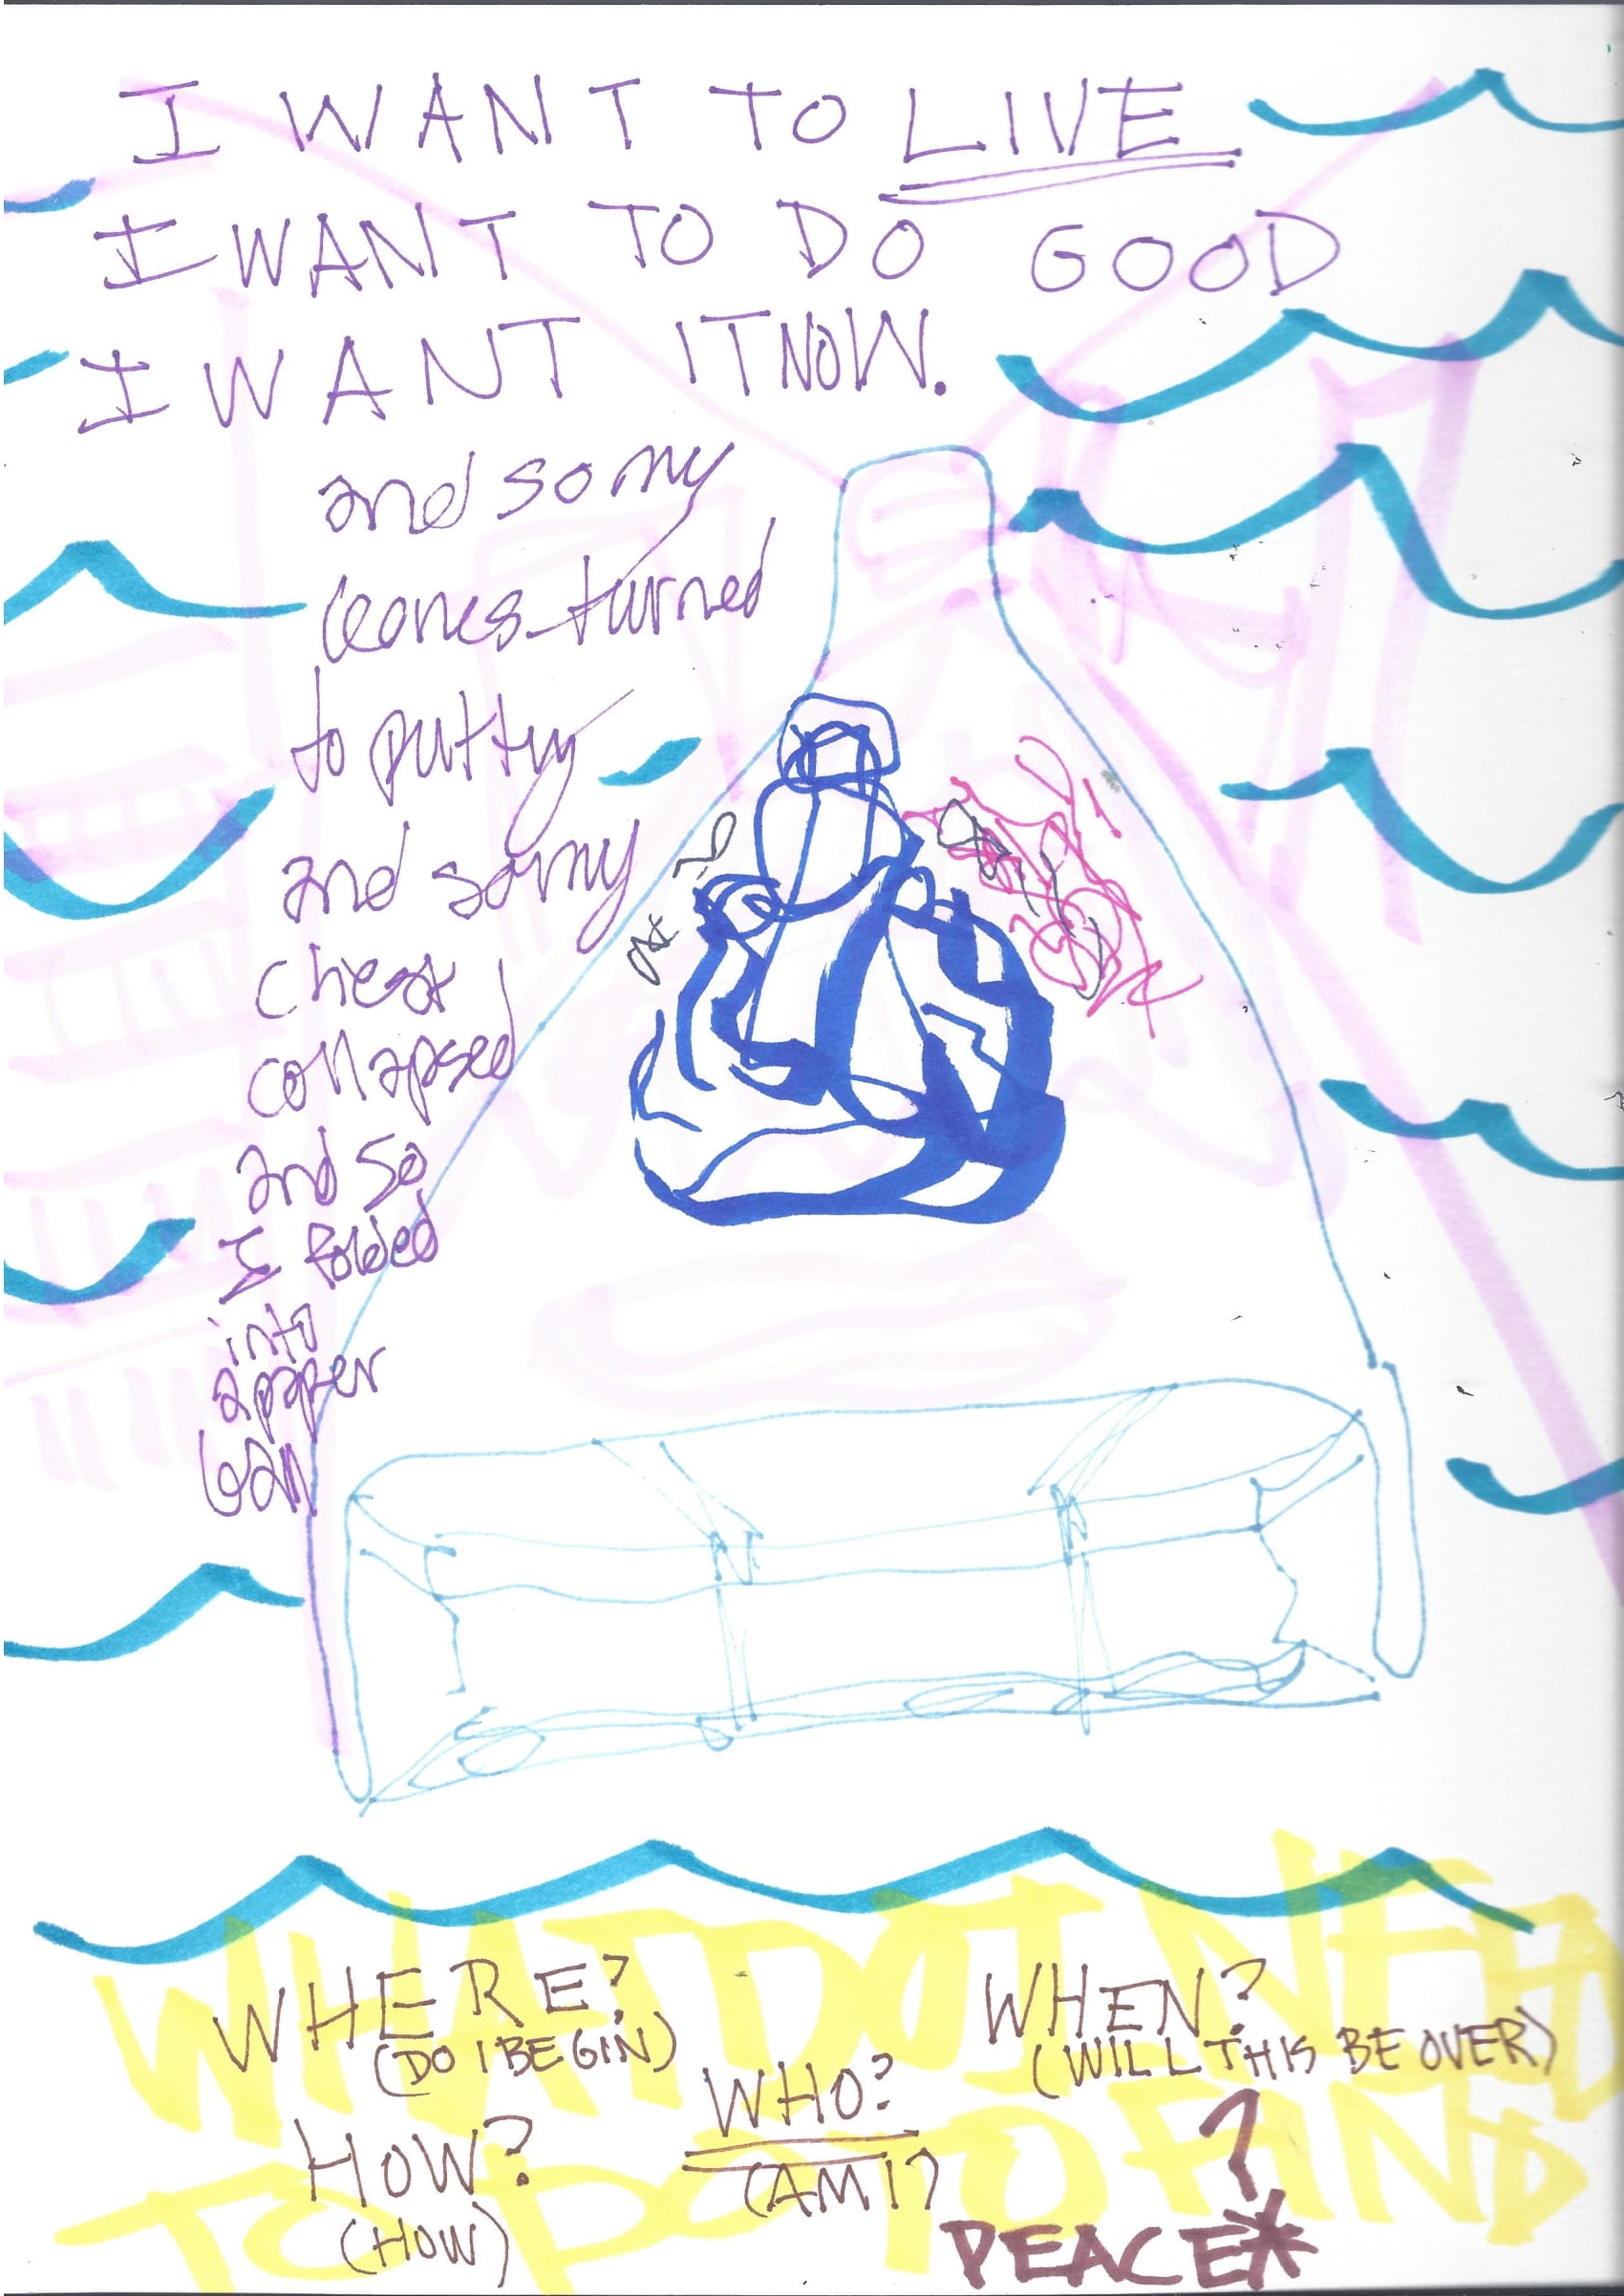 I WANT TO LIVE
I WANT TO DO GOOD
I WANT IT NOW.
and so my
bones turned
to putty
and so my
chest
collapsed
and so
I folded
into
a paper
ball
WHAT DO I NEED
TO DO TO FIND
WHERE?
(DO I BEGIN)
WHEN?
(WILL THIS BE OVER)
WHO?
(AM I?
HOW?
(HOW)
?
PEACE*